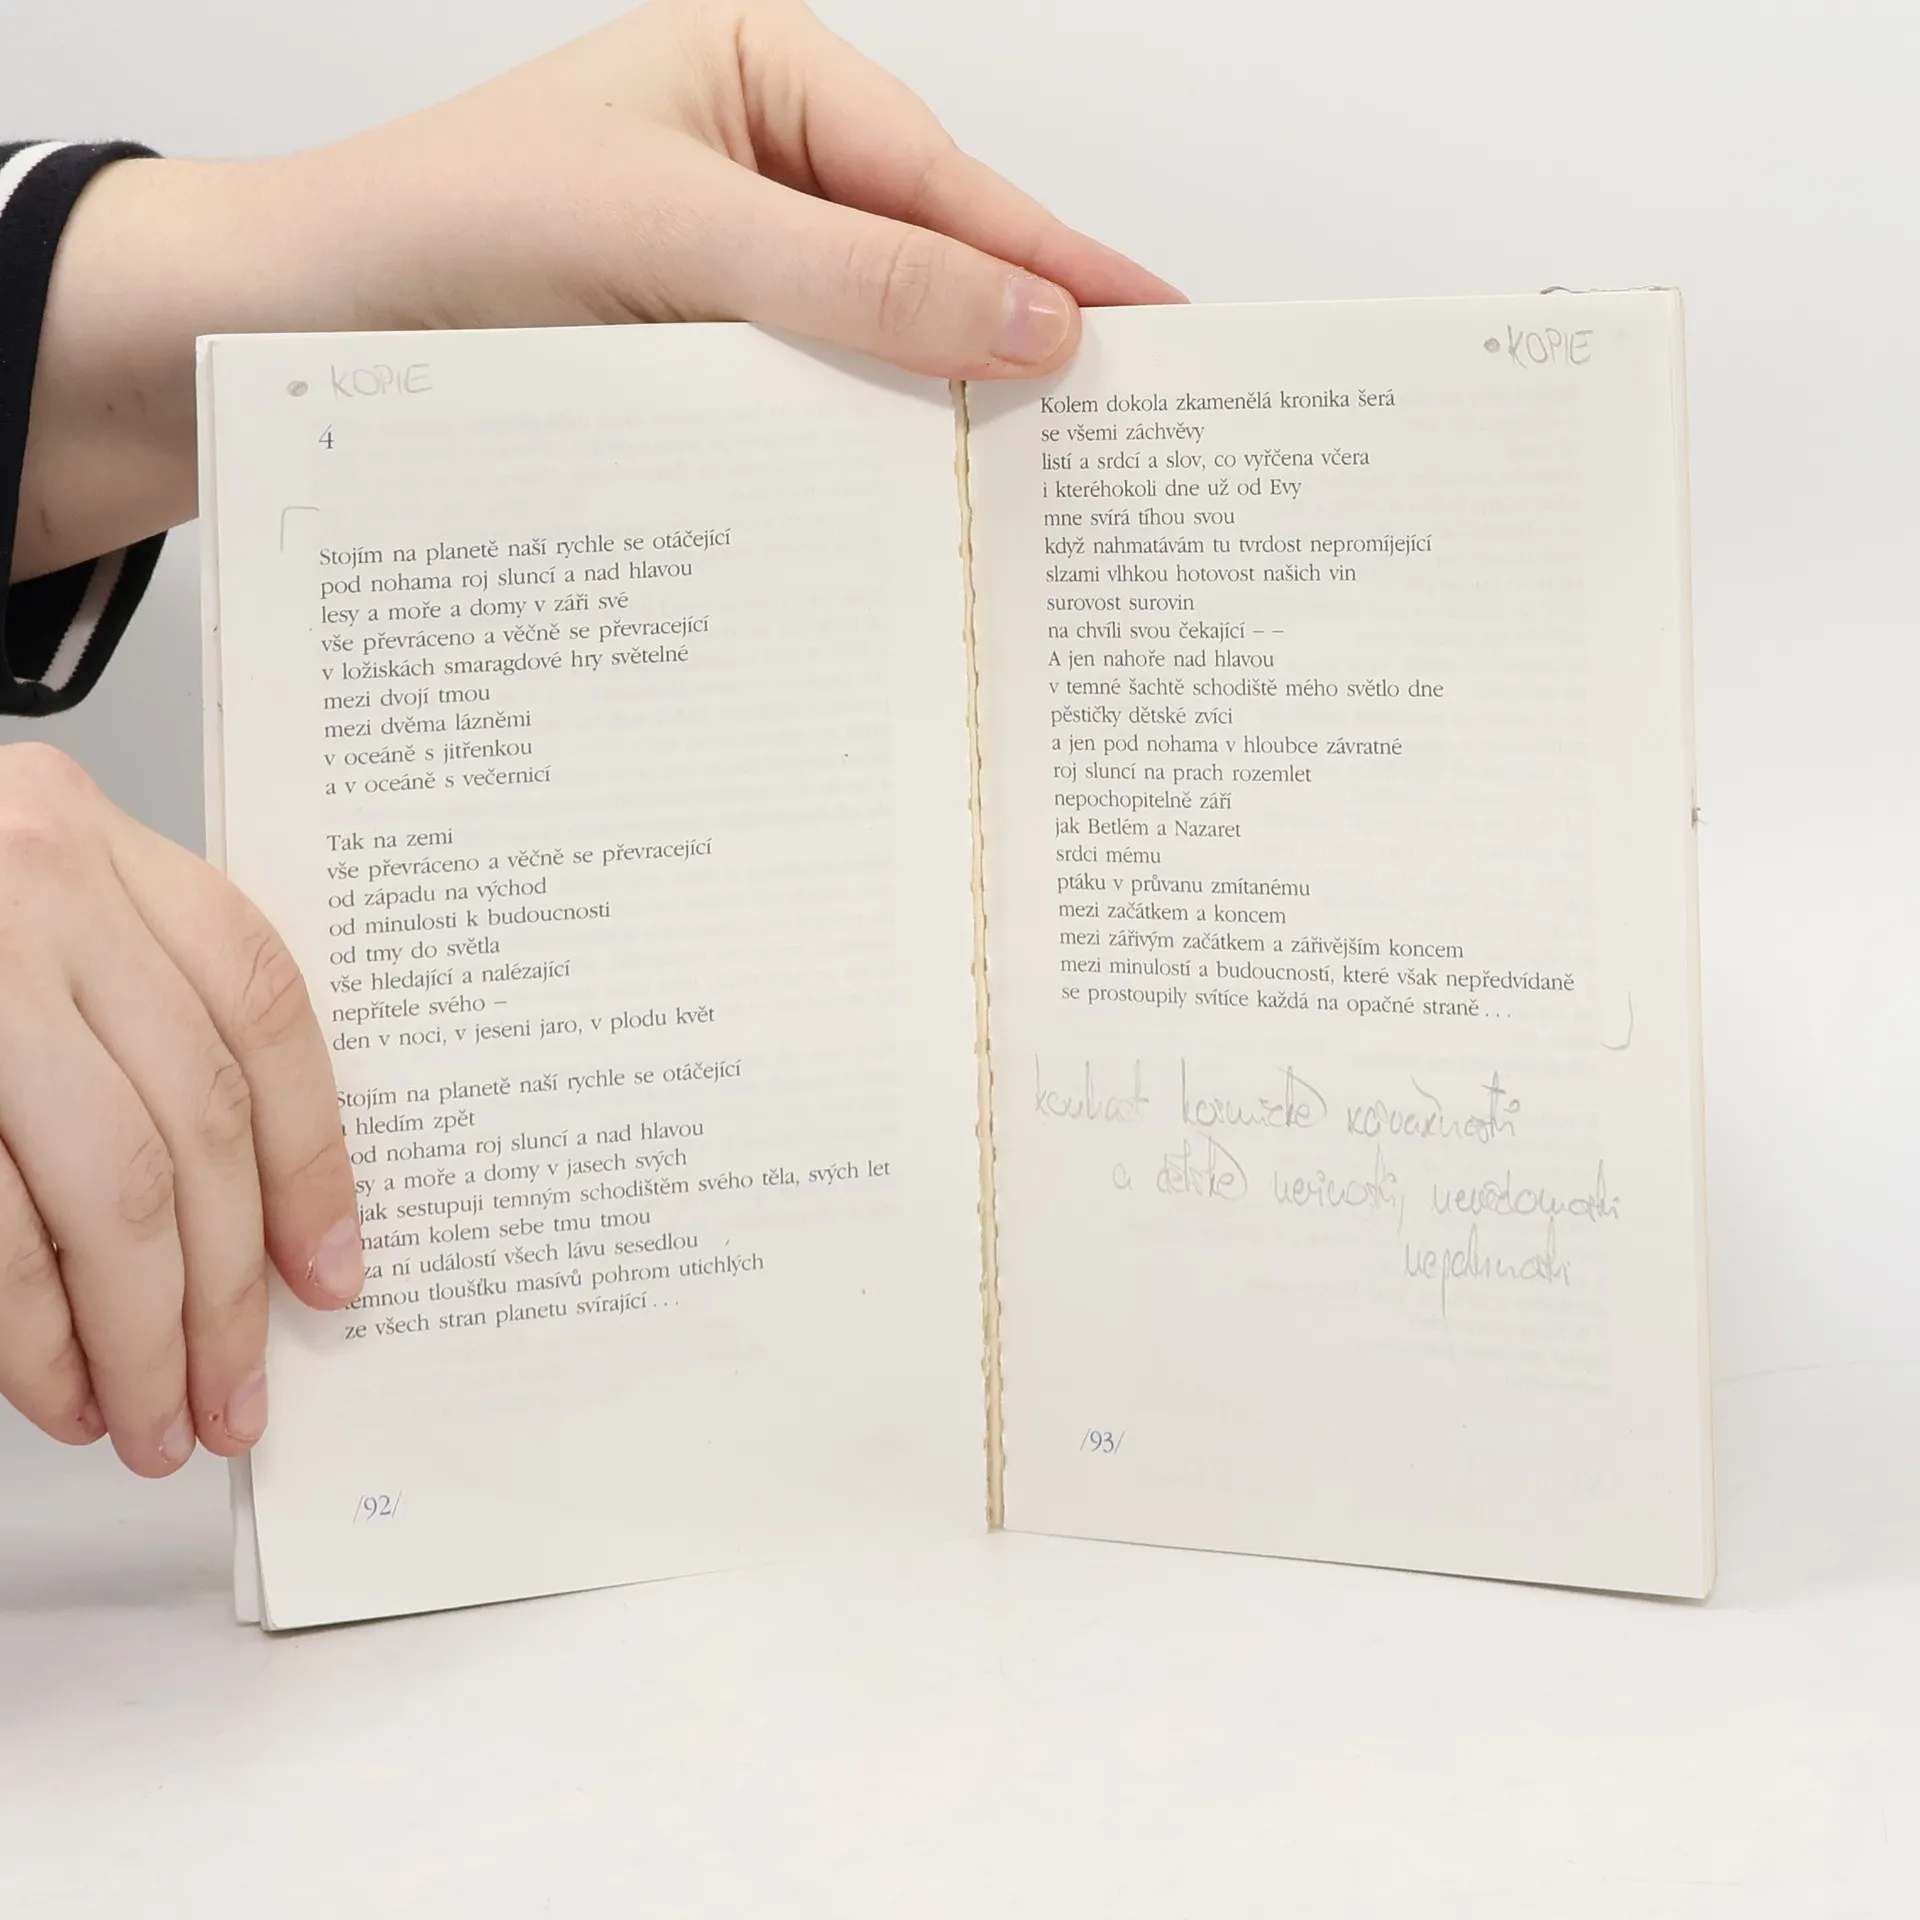 • KOPIE
4
Stojím na planetě naší rychle se otáčející
pod nohama roj sluncí a nad hlavou
lesy a moře a domy v záři své
vše převráceno a věčně se převracející
v ložiskách smaragdové hry světelné
mezi dvojí tmou
mezi dvěma lázněmi
v oceáně s jitřenkou
a v oceáně s večernicí
Tak na zemi
vše převráceno a věčně se převracející
od západu na východ
od minulosti k budoucnosti
od tmy do světla
vše hledající a nalézající
nepřítele svého –
den v noci, v jeseni jaro, v plodu květ
Stojím na planetě naší rychle se otáčející
hledím zpět
od nohama roj sluncí a nad hlavou
sy a moře a domy v jasech svých
jak sestupuji temným schodištěm svého těla, svých let
matám kolem sebe tmu tmou
za ní událostí všech lávu sesedlou
temnou tloušťku masívů pohrom utichlých
ze všech stran planetu svírající . . .
/92/
• KOPIE
Kolem dokola zkamenělá kronika šerá
se všemi záchvěvy
listí a srdcí a slov, co vyřčena včera
i kteréhokoli dne už od Evy
mne svírá tíhou svou
když nahmatávám tu tvrdost nepromíjející
slzami vlhkou hotovost našich vin
surovost surovin
na chvíli svou čekající – –
A jen nahoře nad hlavou
v temné šachtě schodiště mého světlo dne
pěstičky dětské zvíci
a jen pod nohama v hloubce závratné
roj sluncí na prach rozemlet
nepochopitelně září
jak Betlém a Nazaret
srdci mému
ptáku v průvanu zmítanému
mezi začátkem a koncem
mezi zářivým začátkem a zářivějším koncem
mezi minulostí a budoucností, které však nepředvídaně
se prostoupily svítíce každá na opačné straně . . .
kontrast kosmické
a dětské nevinnosti, nevědomosti
/93/